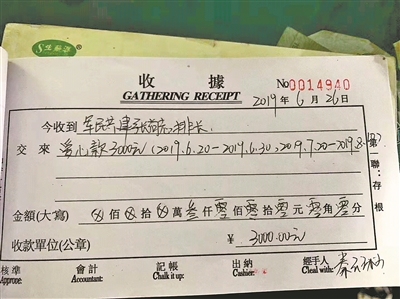 收 據 No 0014940
GATHERING RECEIPT 2019 年 6 月 26 日
今收到 军民共建张 排长
交 來 爱心款3000元 (2019.6.20-2019.6.30, 2019.7.20-2019.8
第 聯：存 根
金額(大寫) ⊗ 佰 ⊗ 拾 ⊗ 萬 叁 仟 零 佰 零 拾 零 元 零 角 零 分
收款單位(公章) ¥ 3000.00元
核準 會計 記帳 出納 經手人 秦
Approve: Accountant: Chalk it up: Cashier: Cheal with: